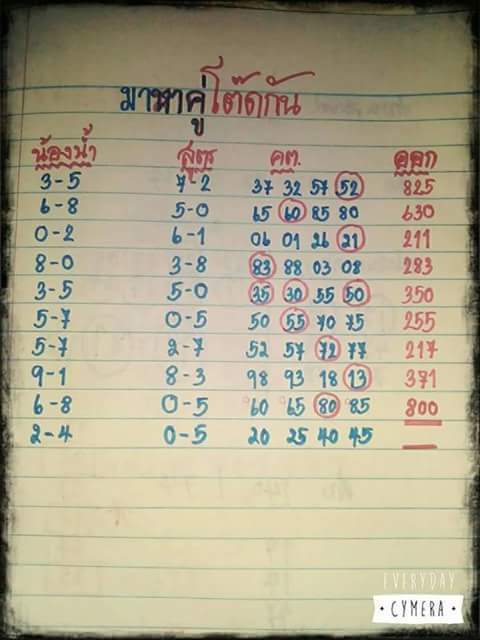 มาหาคู่โต๊ดกัน
น้องน้ำ สูตร คต. ออก
3-5 7-2 37 32 57 52 825
6-8 5-0 65 60 85 80 630
0-2 6-1 06 01 26 21 211
8-0 3-8 83 88 03 08 283
3-5 5-0 35 30 55 50 350
5-7 0-5 50 55 70 75 255
5-7 2-7 52 57 72 77 217
9-1 8-3 98 93 18 13 371
6-8 0-5 60 65 80 85 800
2-4 0-5 20 25 40 45
EVERYDAY
CYMERA